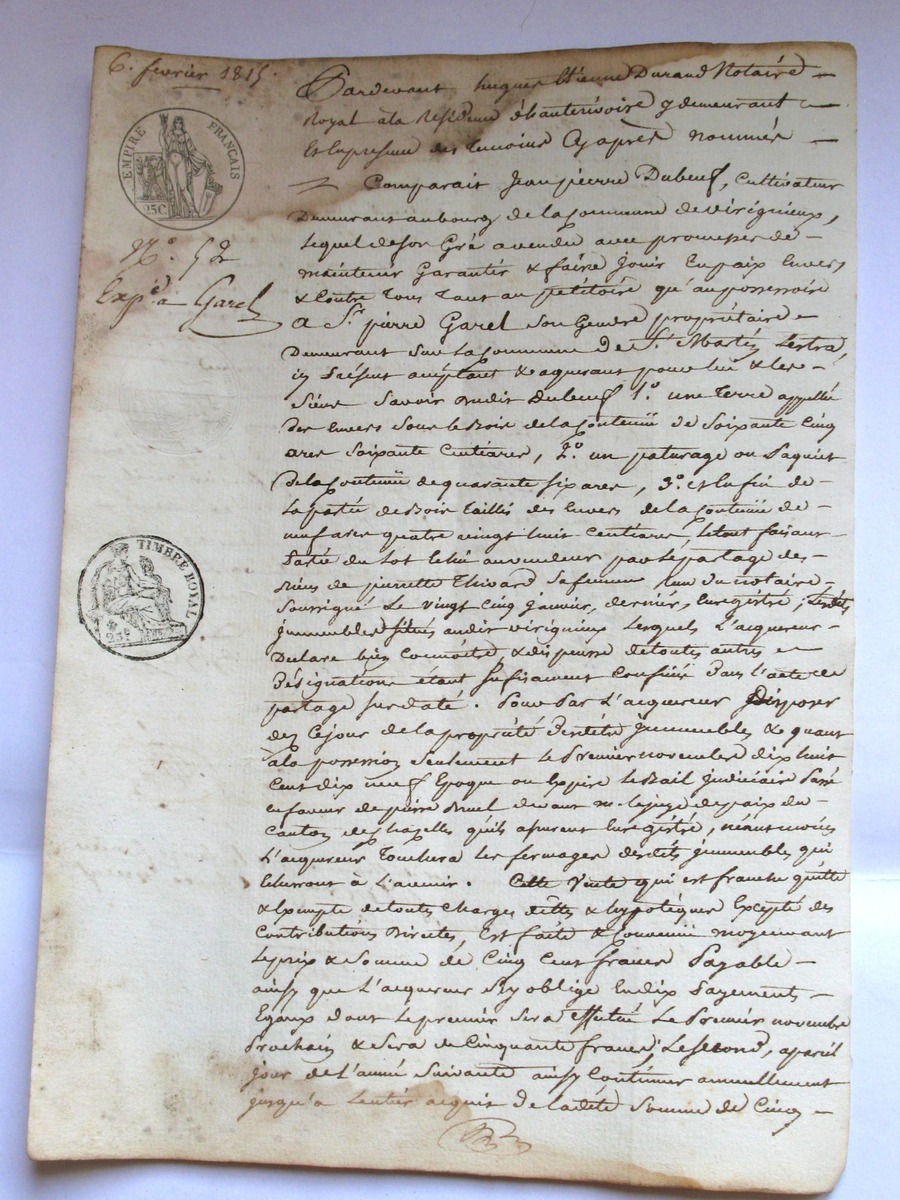 6. fevrier 1815.
EMPIRE FRANÇAIS
25C.
N.o 52
Exp.é à Garel
TIMBRE ROYAL
25.c
Pardevant hugues Etienne Durand Notaire
Royal à la Residence y demeurant
et en presence des temoins cy après nommés
Comparait Jean pierre Dubeuf, cultivateur
Demeurant au bourg de la commune de virignieux,
lequel de son Gré a vendu avec promesses de
maintenir Garantir & faire jouir en paix Envers
& contre tous tant au petitoire qu'au possessoire
A S.r pierre Garel son Gendre propriétaire
Demeurant sur la commune de S.t Martin Lestra,
ici présent acceptant & aquerant pour lui & les
siens savoir dudit Dubeuf 1.o une Terre appellée
des Envers sous le Bois de la contenue de soixante cinq
ares soixante centiares, 2.o un paturage ou paquier
de la contenue de quarante six ares, 3.o et enfin de
la partie de Bois Taillis des Envers de la contenue de
neuf ares quatre vingt huit centiares, le tout faisant
partie du lot échu au vendeur par le partage des
biens de pierrette Thivard sa femme reçu du notaire
soussigné le vingt cinq janvier, dernier, Enregistré; lesdits
jmmeubles situés audit virignieux lesquels L'acquereur
Declare bien connoitre & dispense de toutes autres
Désignations étant suffisament confiné dans l'acte de
partage susdaté. Pour Par L'acquereur Disposer
dès ce jour de la propriété desdits jmmeubles & quant
à la possession seulement le Premier novembre dix huit
cent dix neuf Epoque ou Expire le Bail judiciaire Passé
en faveur de pierre Bruel devant m. le juge de paix du
canton de Chazelles qu'ils assurent Enregistré, néantmoins
L'acquereur Touchera les fermages desdits jmmeubles qui
écherront à L'avenir. Cette Vente qui est franche quitte
& Exempte de toutes charges dettes & hypotèques Excepté des
Contributions Directes, est faite & convenue moyennant
le prix & somme de Cinq Cent francs Payable
ainsy que L'acquereur s'y oblige En dix Payements
Egaux dont le premier sera effectué Le Premier novembre
Prochain & sera de Cinquante francs; Le second, a pareil
jour de L'année suivante ainsy continuer annuellement
jusqu'à L'entier acquit de ladite somme de Cinq